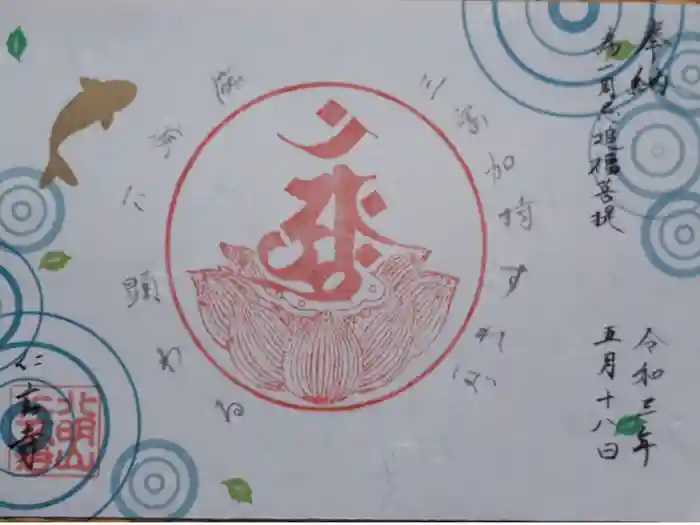 奉納
為一周忌追福菩提
令和三年
五月十八日
三密加持すれば
速疾に顕わる
北明山